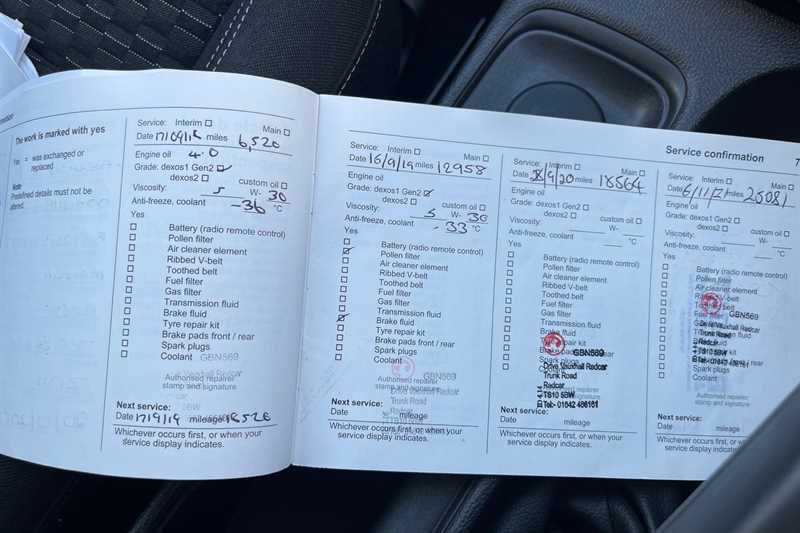 The work is marked with yes
Yes = was exchanged or
replaced
Note
Predefined details must not be
altered.
Service: Interim
Main
Date 17/09/18 miles 6,520
Engine oil 4.0
Grade: dexos1 Gen2
dexos2 custom oil
Viscosity: 5 W- 30
Anti-freeze, coolant -36 °C
Yes
Battery (radio remote control)
Pollen filter
Air cleaner element
Ribbed V-belt
Toothed belt
Fuel filter
Gas filter
Transmission fluid
Brake fluid
Tyre repair kit
Brake pads front / rear
Spark plugs
Coolant GBN569
Authorised repairer
stamp and signature
Next service:
Date 17/9/19 mileage
Whichever occurs first, or when your
service display indicates.
Service: Interim
Main
Date 16/9/19 miles 12958
Engine oil
Grade: dexos1 Gen2
dexos2 custom oil
Viscosity: 5 W- 30
Anti-freeze, coolant -33 °C
Yes
Battery (radio remote control)
Pollen filter
Air cleaner element
Ribbed V-belt
Toothed belt
Fuel filter
Gas filter
Transmission fluid
Brake fluid
Tyre repair kit
Brake pads front / rear
Spark plugs
Coolant GBN569
Authorised repairer
stamp and signature
Drive Vauxhall Redcar
Trunk Road
Redcar
Next service:
Date mileage
Whichever occurs first, or when your
service display indicates.
Service: Interim
Main
Date /9/20 miles 18564
Engine oil
Grade: dexos1 Gen2
dexos2 custom oil
Viscosity: W-
Anti-freeze, coolant °C
Yes
Battery (radio remote control)
Pollen filter
Air cleaner element
Ribbed V-belt
Toothed belt
Fuel filter
Gas filter
Transmission fluid
Brake fluid
repair kit
Brake pads GBN569
Spark
Drive Vauxhall Redcar
Trunk Road
Redcar
TS10 5BW
Tel:- 01642 486161
Next service:
Date mileage
Whichever occurs first, or when your
service display indicates.
Service confirmation 7
Service: Interim
Main
Date 6/11/21 miles 25081
Engine oil
Grade: dexos1 Gen2
dexos2 custom oil
Viscosity: W-
Anti-freeze, coolant °C
Yes
Battery (radio remote control)
Pollen filter
Air cleaner element
V-belt
belt
GBN569
Drive Vauxhall Redcar
Trunk Road
Redcar
TS10 5BW
Spark plugs
Coolant
Authorised repairer
stamp and signature
Next service:
Date mileage
Whichever occurs first, or when your
service display indicates.